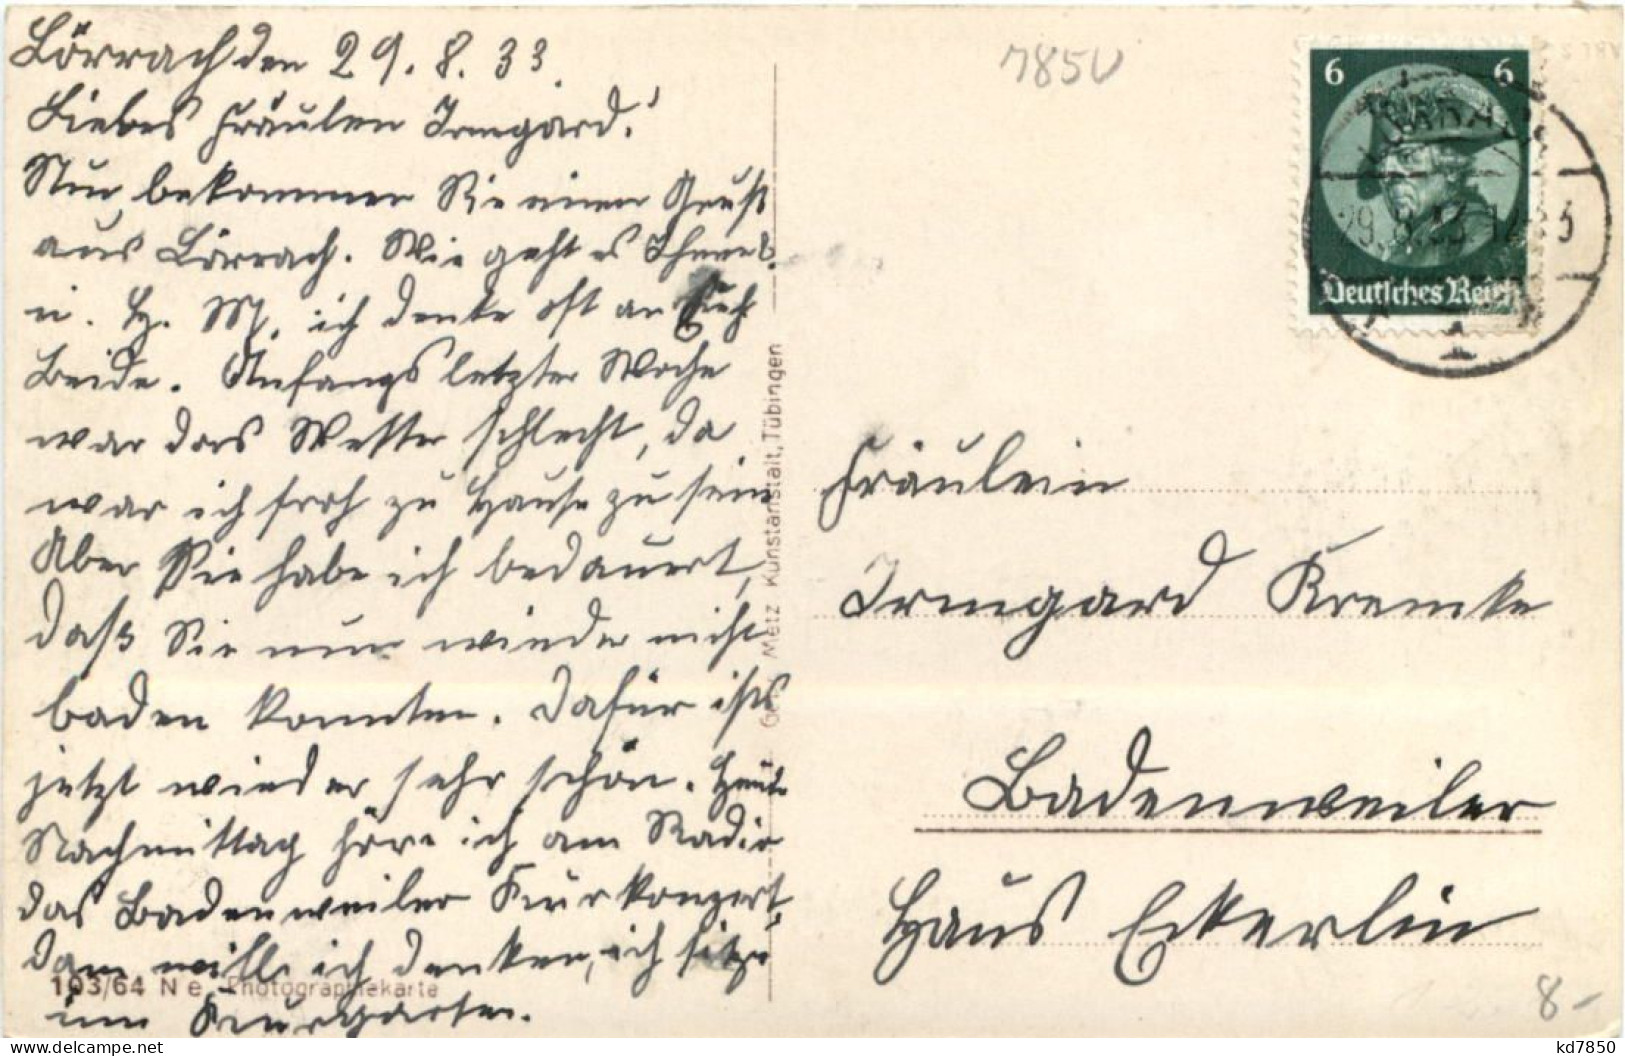 Lörrach den 29. 8. 33.
Liebes Fräulein Irmgard!
Nun bekommen Sie einen Gruß
aus Lörrach. Wie geht es Ihnen?
u. H. M. ich denke oft an Euch
Beide. Anfangs letzter Woche
war das Wetter schlecht, da
war ich froh zu Hause zu sein
Aber Sie habe ich bedauert,
daß Sie nun wieder nicht
baden konnten. Dafür ists
jetzt wieder sehr schön. Heute
Nachmittag höre ich am Radio
das Badenweiler Kurkonzert,
dann will ich denken, ich sitze
im Kurgarten.
103/64 N e. Photographiekarte
Metz Kunstanstalt, Tübingen
7850
6 6
Deutsches Reich
29.8.33
Fräulein
Irmgard Kremke
Badenweiler
Haus Eckerlin
8-
kd7850